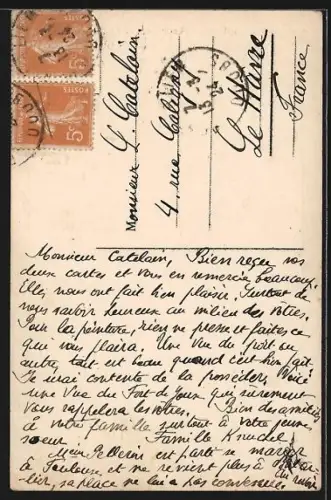 POSTES
5c
POSTES
5c
DOUBS
Monsieur L. Catelain
4, rue
Le Havre
France
Monsieur Catelain, Bien reçu vos
deux cartes et vous en remercie beaucoup.
Elles nous ont fait bien plaisir. Surtout de
vous savoir heureux au milieu des vôtres.
Pour la peinture, rien ne presse et faites ce
qui vous plaira. Une vue du port ou
autre, tout est beau quand c'est bien fait.
Je serai contente de la posséder. Voici
une vue du Fort de Joux qui sûrement
vous rappellera les nôtres. Bien des amitiés
à votre famille surtout à votre jeune
soeur. Famille
Pellerin est parti se marier
à Toulouse et ne revient plus à
sa place ne lui a pas convenue.